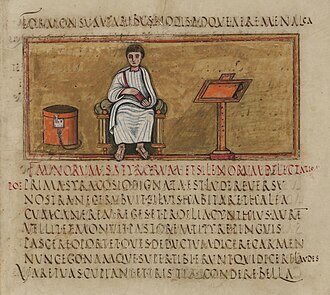 FORMONSVMPARIBVSNODISADQVEAEREMENALCA
FAVNORVM SATYRORVM ET SILENORVM DELECTATIO
POE PRIMASYRACOSIODIGNATAESTLVDEREVERSV
NOSTRANECERVBVITSILVASHABITARETHALEA
CVMCANEREMREGESETPROELIACYNTHIVSAVRE
VELLITETADMONVITPASTOREMTITYREPINGVIS
PASCEREOPORTETOVESDEDVCTVMDICERECARMEN
NVNCEGONAMQVESVPERTIBIERVNTQVIDICERELAVDES
VARETVASCVPIANTETTRISTIACONDEREBELLA